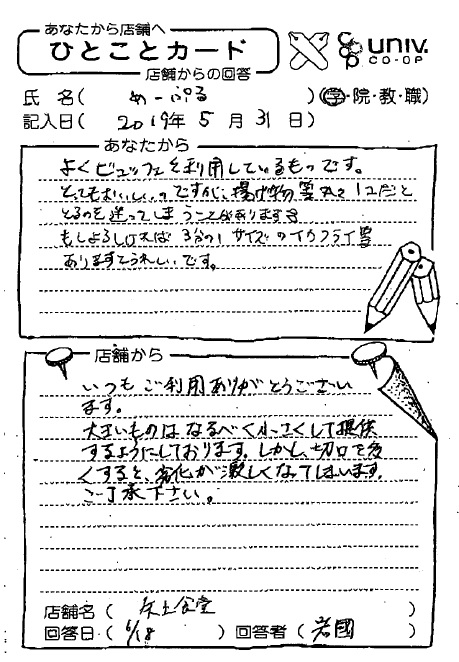 あなたから店舗へ
ひとことカード
店舗からの回答
univ.
CO-OP
氏 名( めーぷる )(学・院・教・職)
記入日( 2019年 5 月 31 日)
あなたから
よくビュッフェを利用しているものです。
とってもおいしいのですが、揚げ物等丸々1コだと
とるのを迷ってしまうことがあります
もしよろしければ 3分の1 サイズのイカフライ等
ありますとうれしいです。
店舗から
いつもご利用ありがとうござい
ます。
大きいものはなるべく小さくして提供
するようにしております。しかし、切口を多
くすると、劣化が激しくなってしまいます。
ご了承下さい。
店舗名( 矢上食堂 )
回答日( 6/18 ) 回答者( 岩國 )